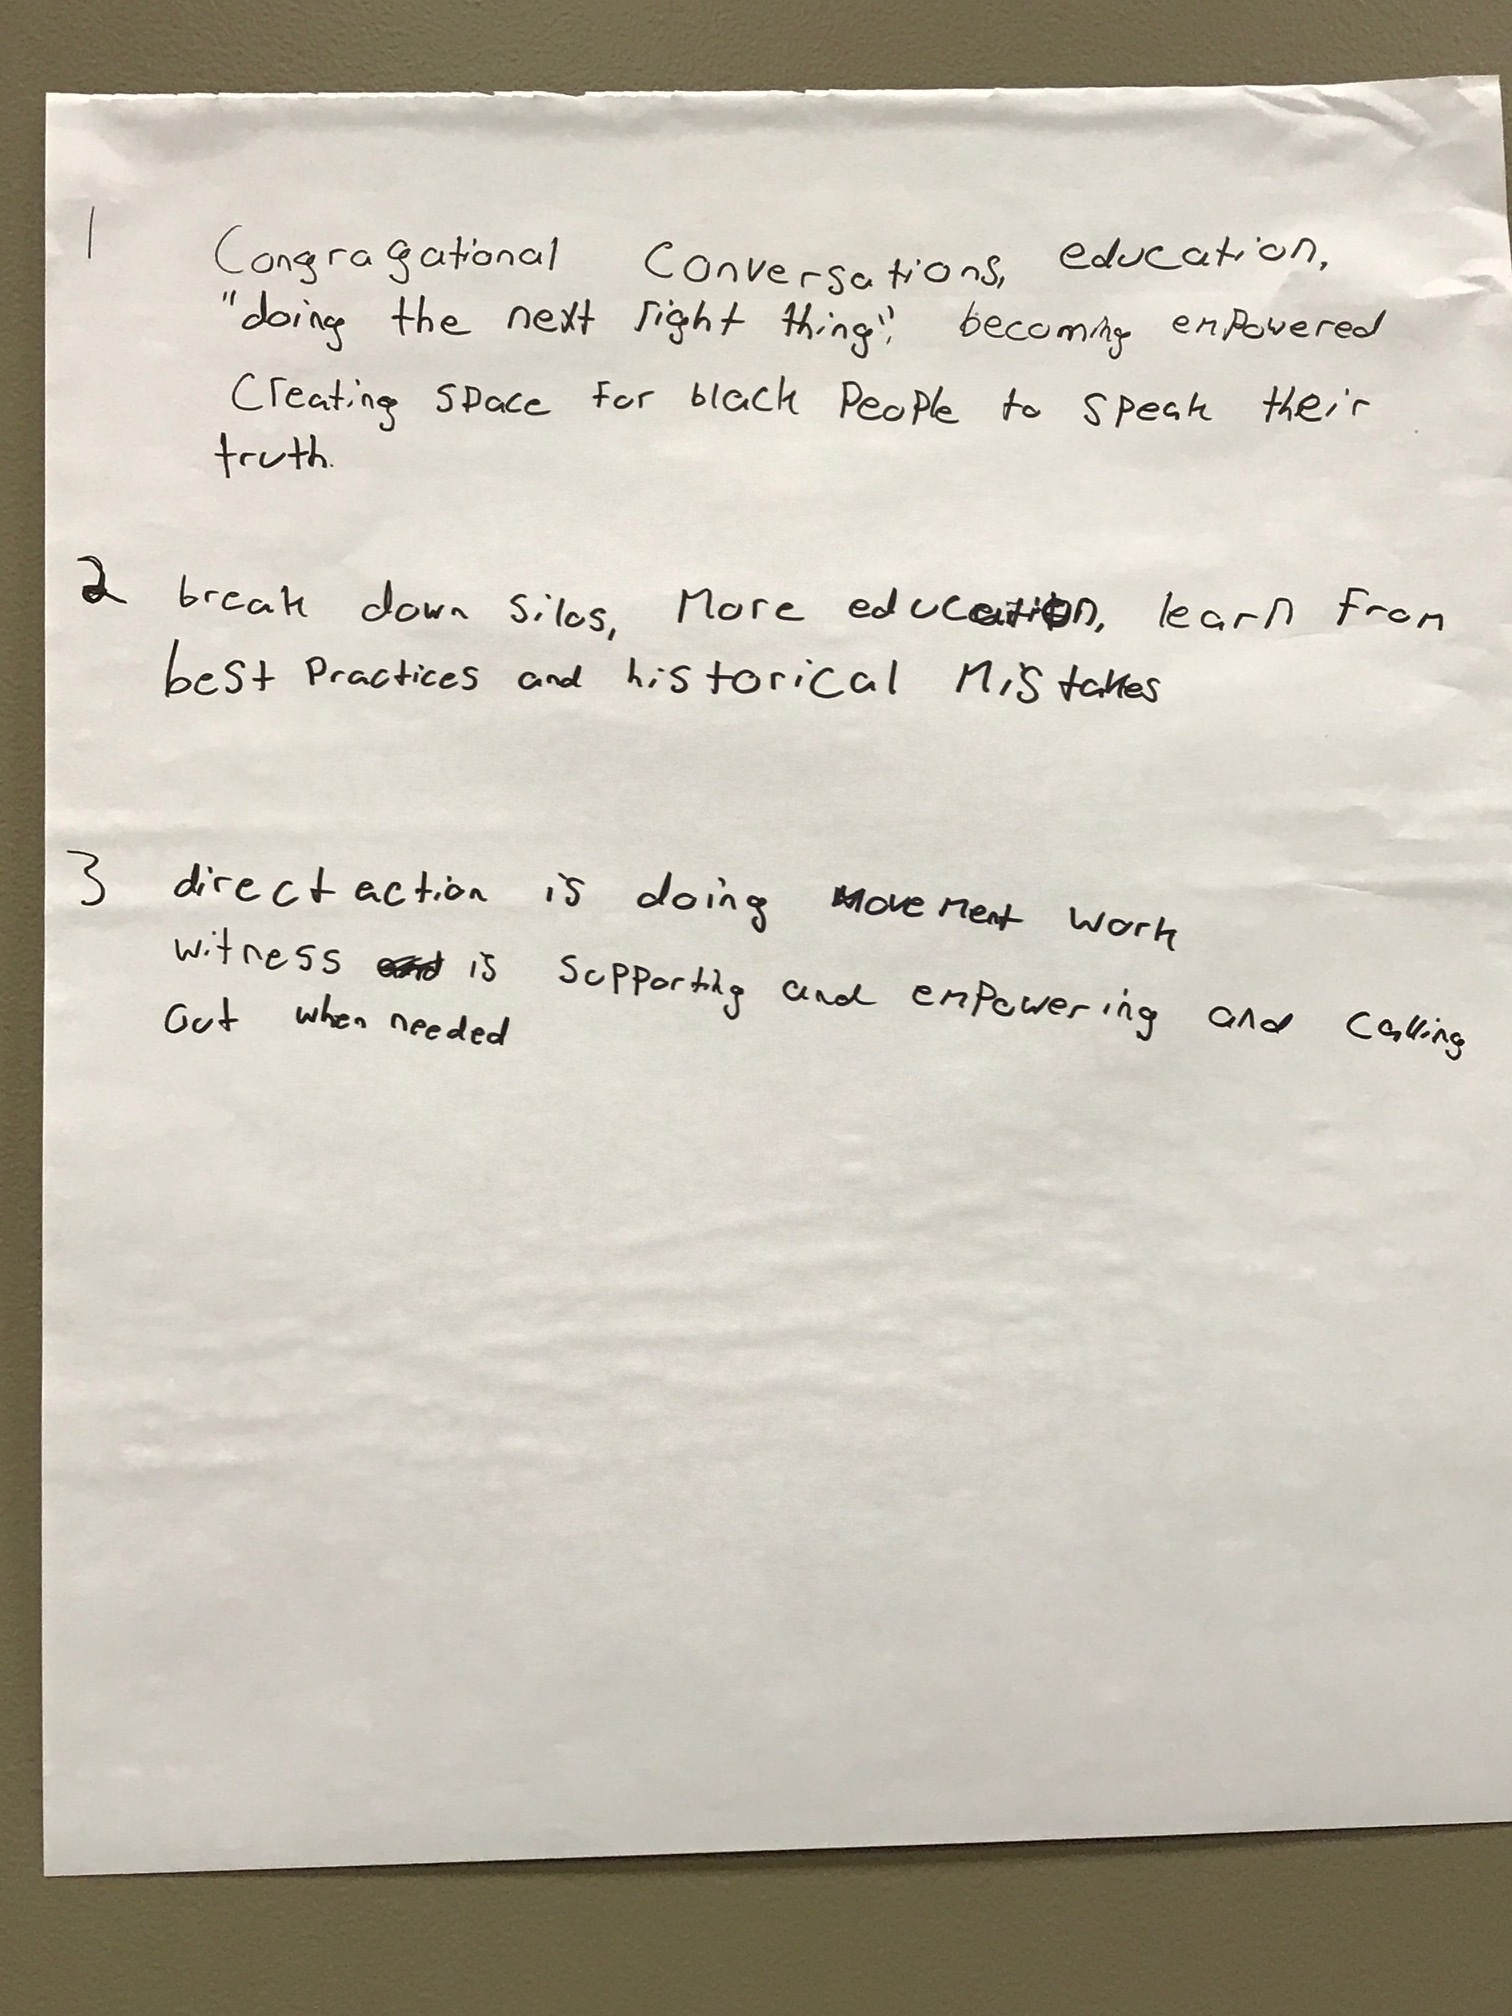 1 Congragational Conversations, education,
"doing the next right thing", becoming empowered
Creating space for black people to speak their
truth.
2 break down silos, More education, learn from
best practices and historical mistakes
3 direct action is doing movement work
witness is supporting and empowering and calling
out when needed